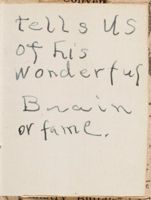 tells us
of his
wonderful
Brain
or fame.